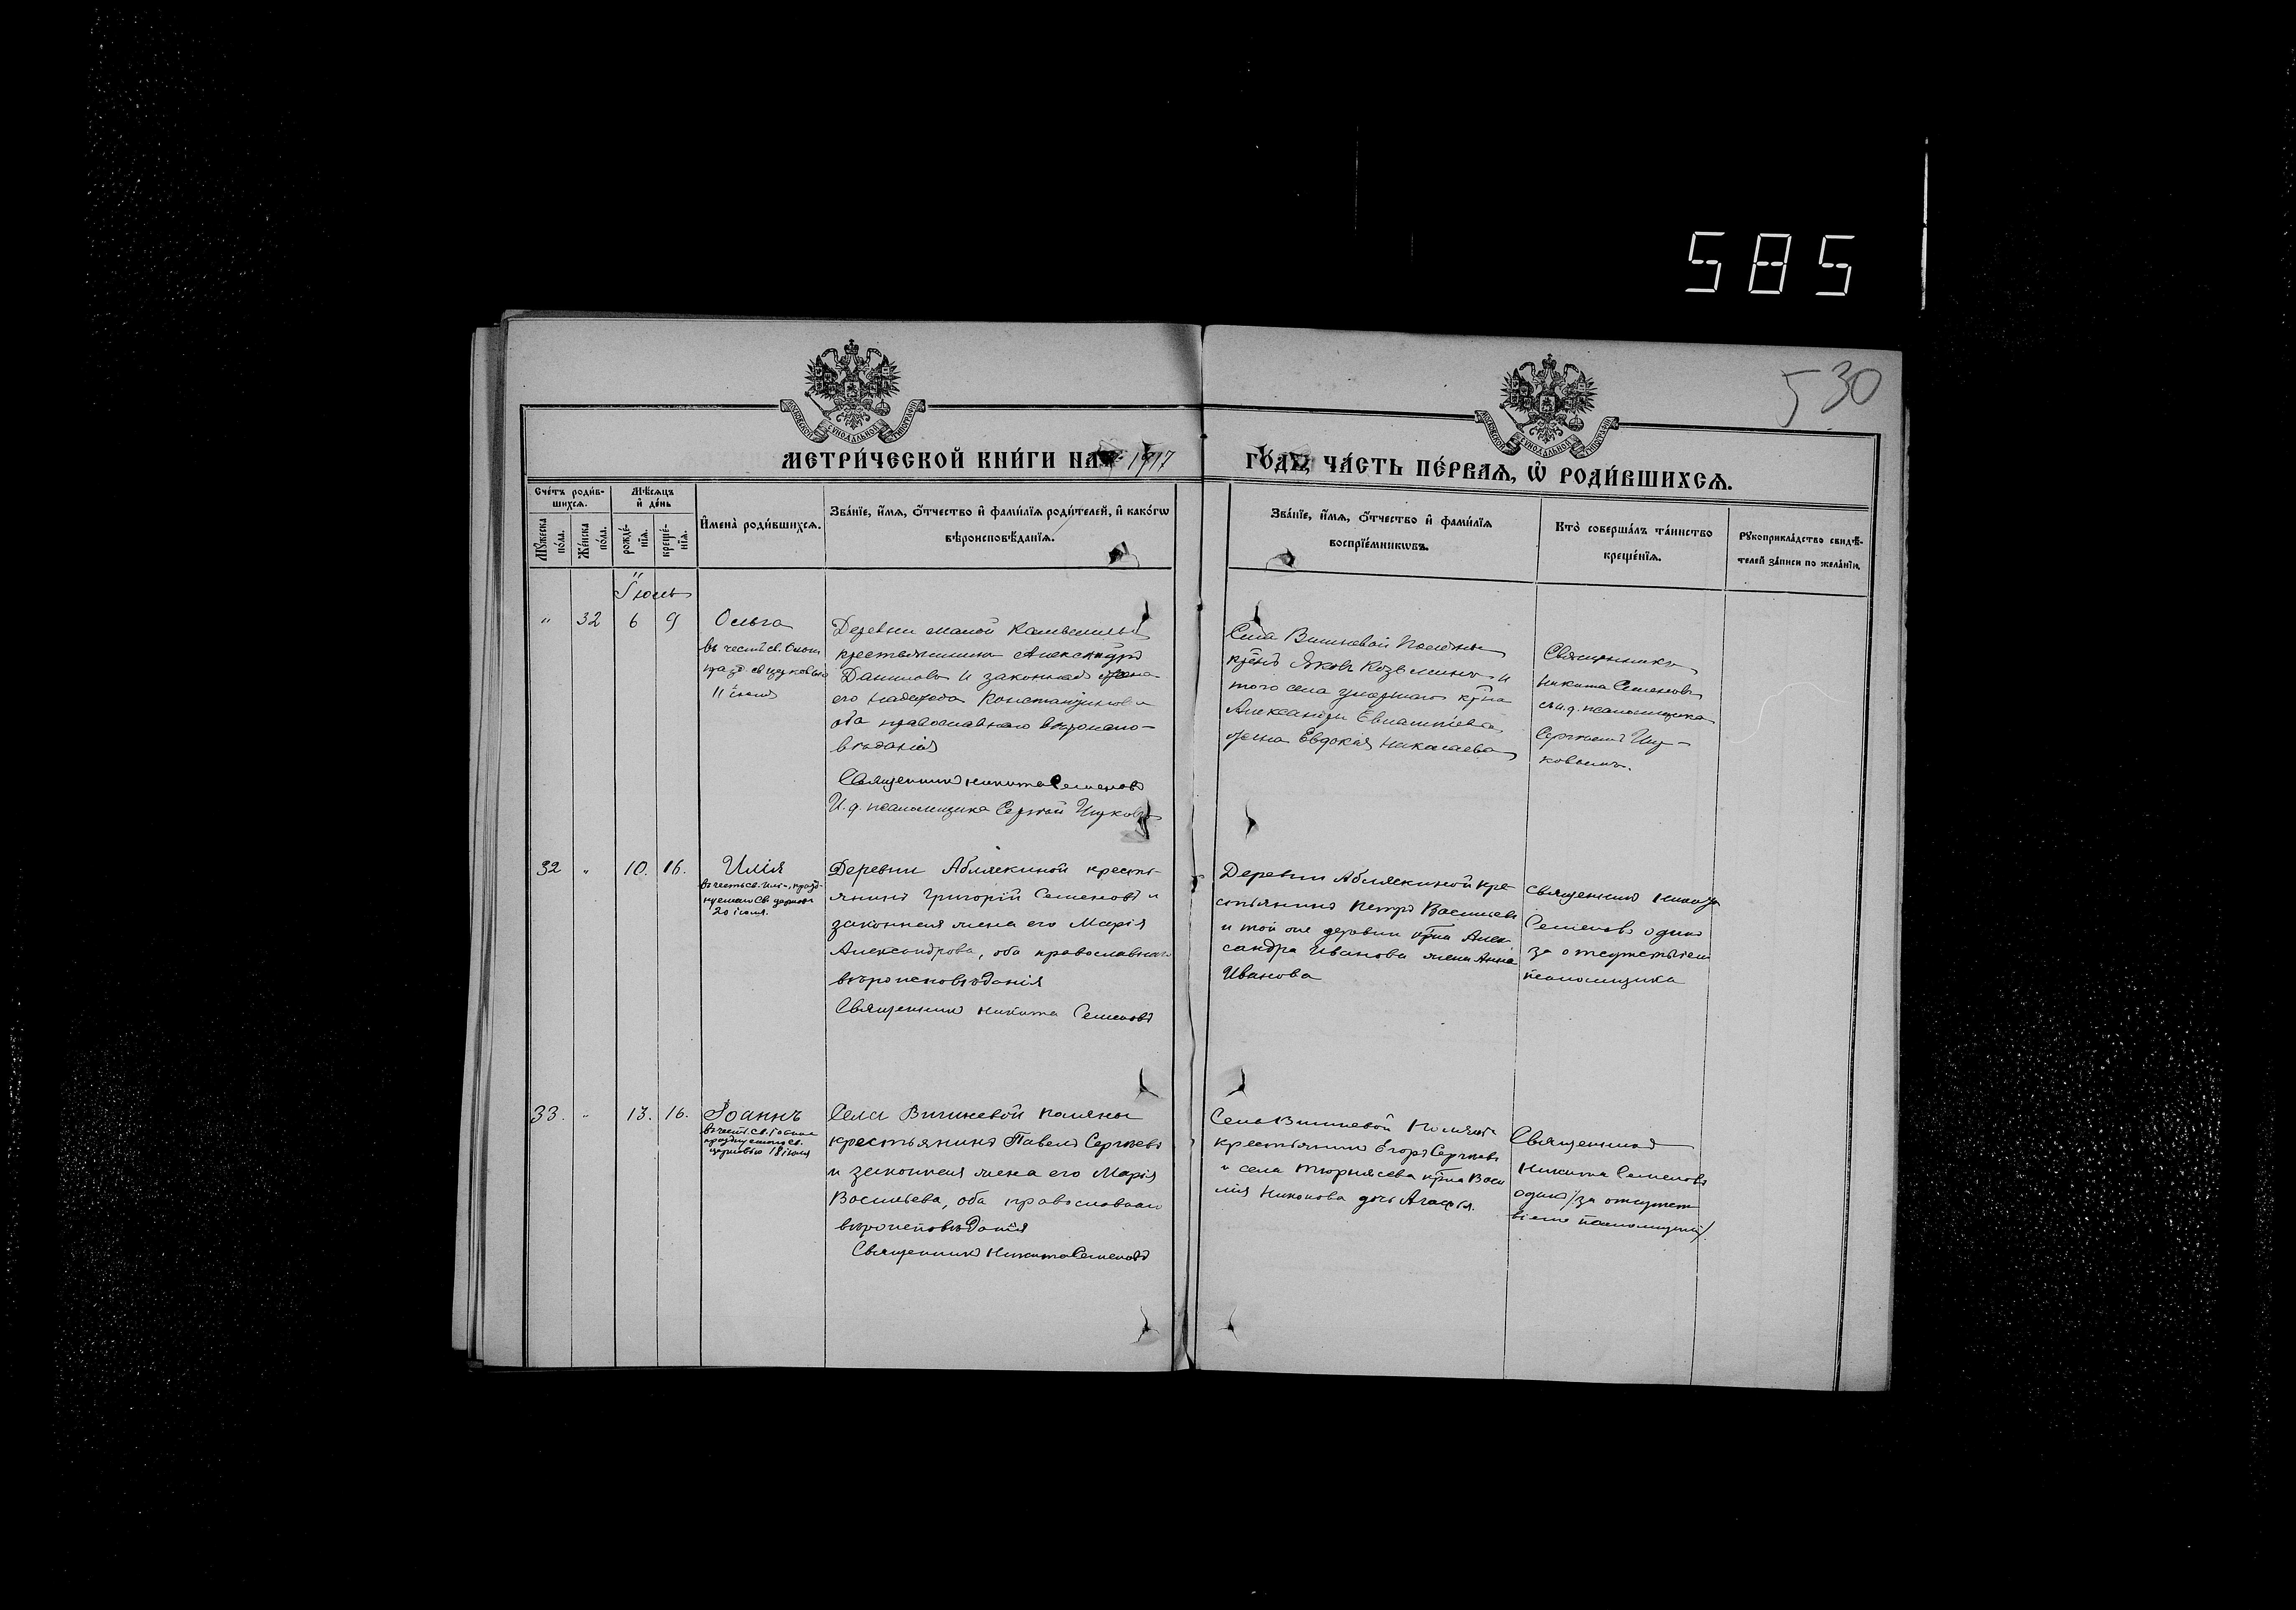 585
530
МОСКОВСКОЙ СѴНОДАЛЬНОЙ ТИПОГРАФІИ
МОСКОВСКОЙ СѴНОДАЛЬНОЙ ТИПОГРАФІИ
МЕТРИ́ЧЕСКОЙ КНИ́ГИ НА 1917
ГО́ДЪ, ЧА́СТЬ ПЕ́РВАѦ, Ѡ҆ РОДИ́ВШИХСѦ.
Сче́тъ роди́в-
шихсѧ.
Мꙋ́жеска
по́ла.
Же́нска
по́ла.
Мѣ́сѧцъ
и҆ де́нь
рожде́-
нїѧ.
креще́-
нїѧ.
И҆мена̀ роди́вшихсѧ.
Зва́нїе, и҆́мѧ, ѻ҆́тчество и҆ фами́лїѧ роди́телей, и҆ како́гѡ
вѣроисповѣ́данїѧ.
Зва́нїе, и҆́мѧ, ѻ҆́тчество и҆ фами́лїѧ
воспрїе́мникѡвъ.
Кто̀ соверша́лъ та́инство
креще́нїѧ.
Рꙋкоприкла́дство свидѣ́-
телей за́писи по жела́нїю.
Іюль
" 32 6 9
Ольга
въ честь св. Ольги
празд. св. церковью
11 іюля
Деревни малой
крестьянинъ Александръ
Даниловъ и законная жена
его Надежда Константинова
оба православнаго вѣроиспо-
вѣданія
Священникъ Никита Семеновъ
И. д. псаломщика Сергѣй
Села Вишневой Поляны
кр-нъ Яковъ Козьминъ и
того села умершаго кр-на
Александра
жена Евдокія Николаева
Священникъ
Никита Семеновъ
съ и. д. псаломщика
Сергѣемъ
ковымъ.
32 " 10. 16.
Илія
въ честь св. Иліи, празд-
нуемаго св. церковью
20 іюля.
Деревни Аблязкиной кресть-
янинъ Григорій Семеновъ и
законная жена его Марія
Александрова, оба православнаго
вѣроисповѣданія
Священникъ Никита Семеновъ
Деревни Аблязкиной кре-
стьянинъ Петръ Васильевъ
и той же деревни кр-на Алек-
сандра Иванова жена Анна
Иванова
Священникъ Никита
Семеновъ одинъ
за отсутствіемъ
псаломщика
33. " 13. 16.
Іоаннъ
въ честь св. Іоанна
празднуемаго св.
церковью 18 іюля
Села Вишневой Поляны
крестьянинъ Павелъ Сергѣевъ
и законная жена его Марія
Васильева, оба православнаго
вѣроисповѣданія
Священникъ Никита Семеновъ
Села Вишневой Поляны
крестьянинъ Егоръ Сергѣевъ
и села Тюрнясева кр-на Васи-
лія Никонова дочь Агафья.
Священникъ
Никита Семеновъ
одинъ /за отсутст-
віемъ псаломщика/